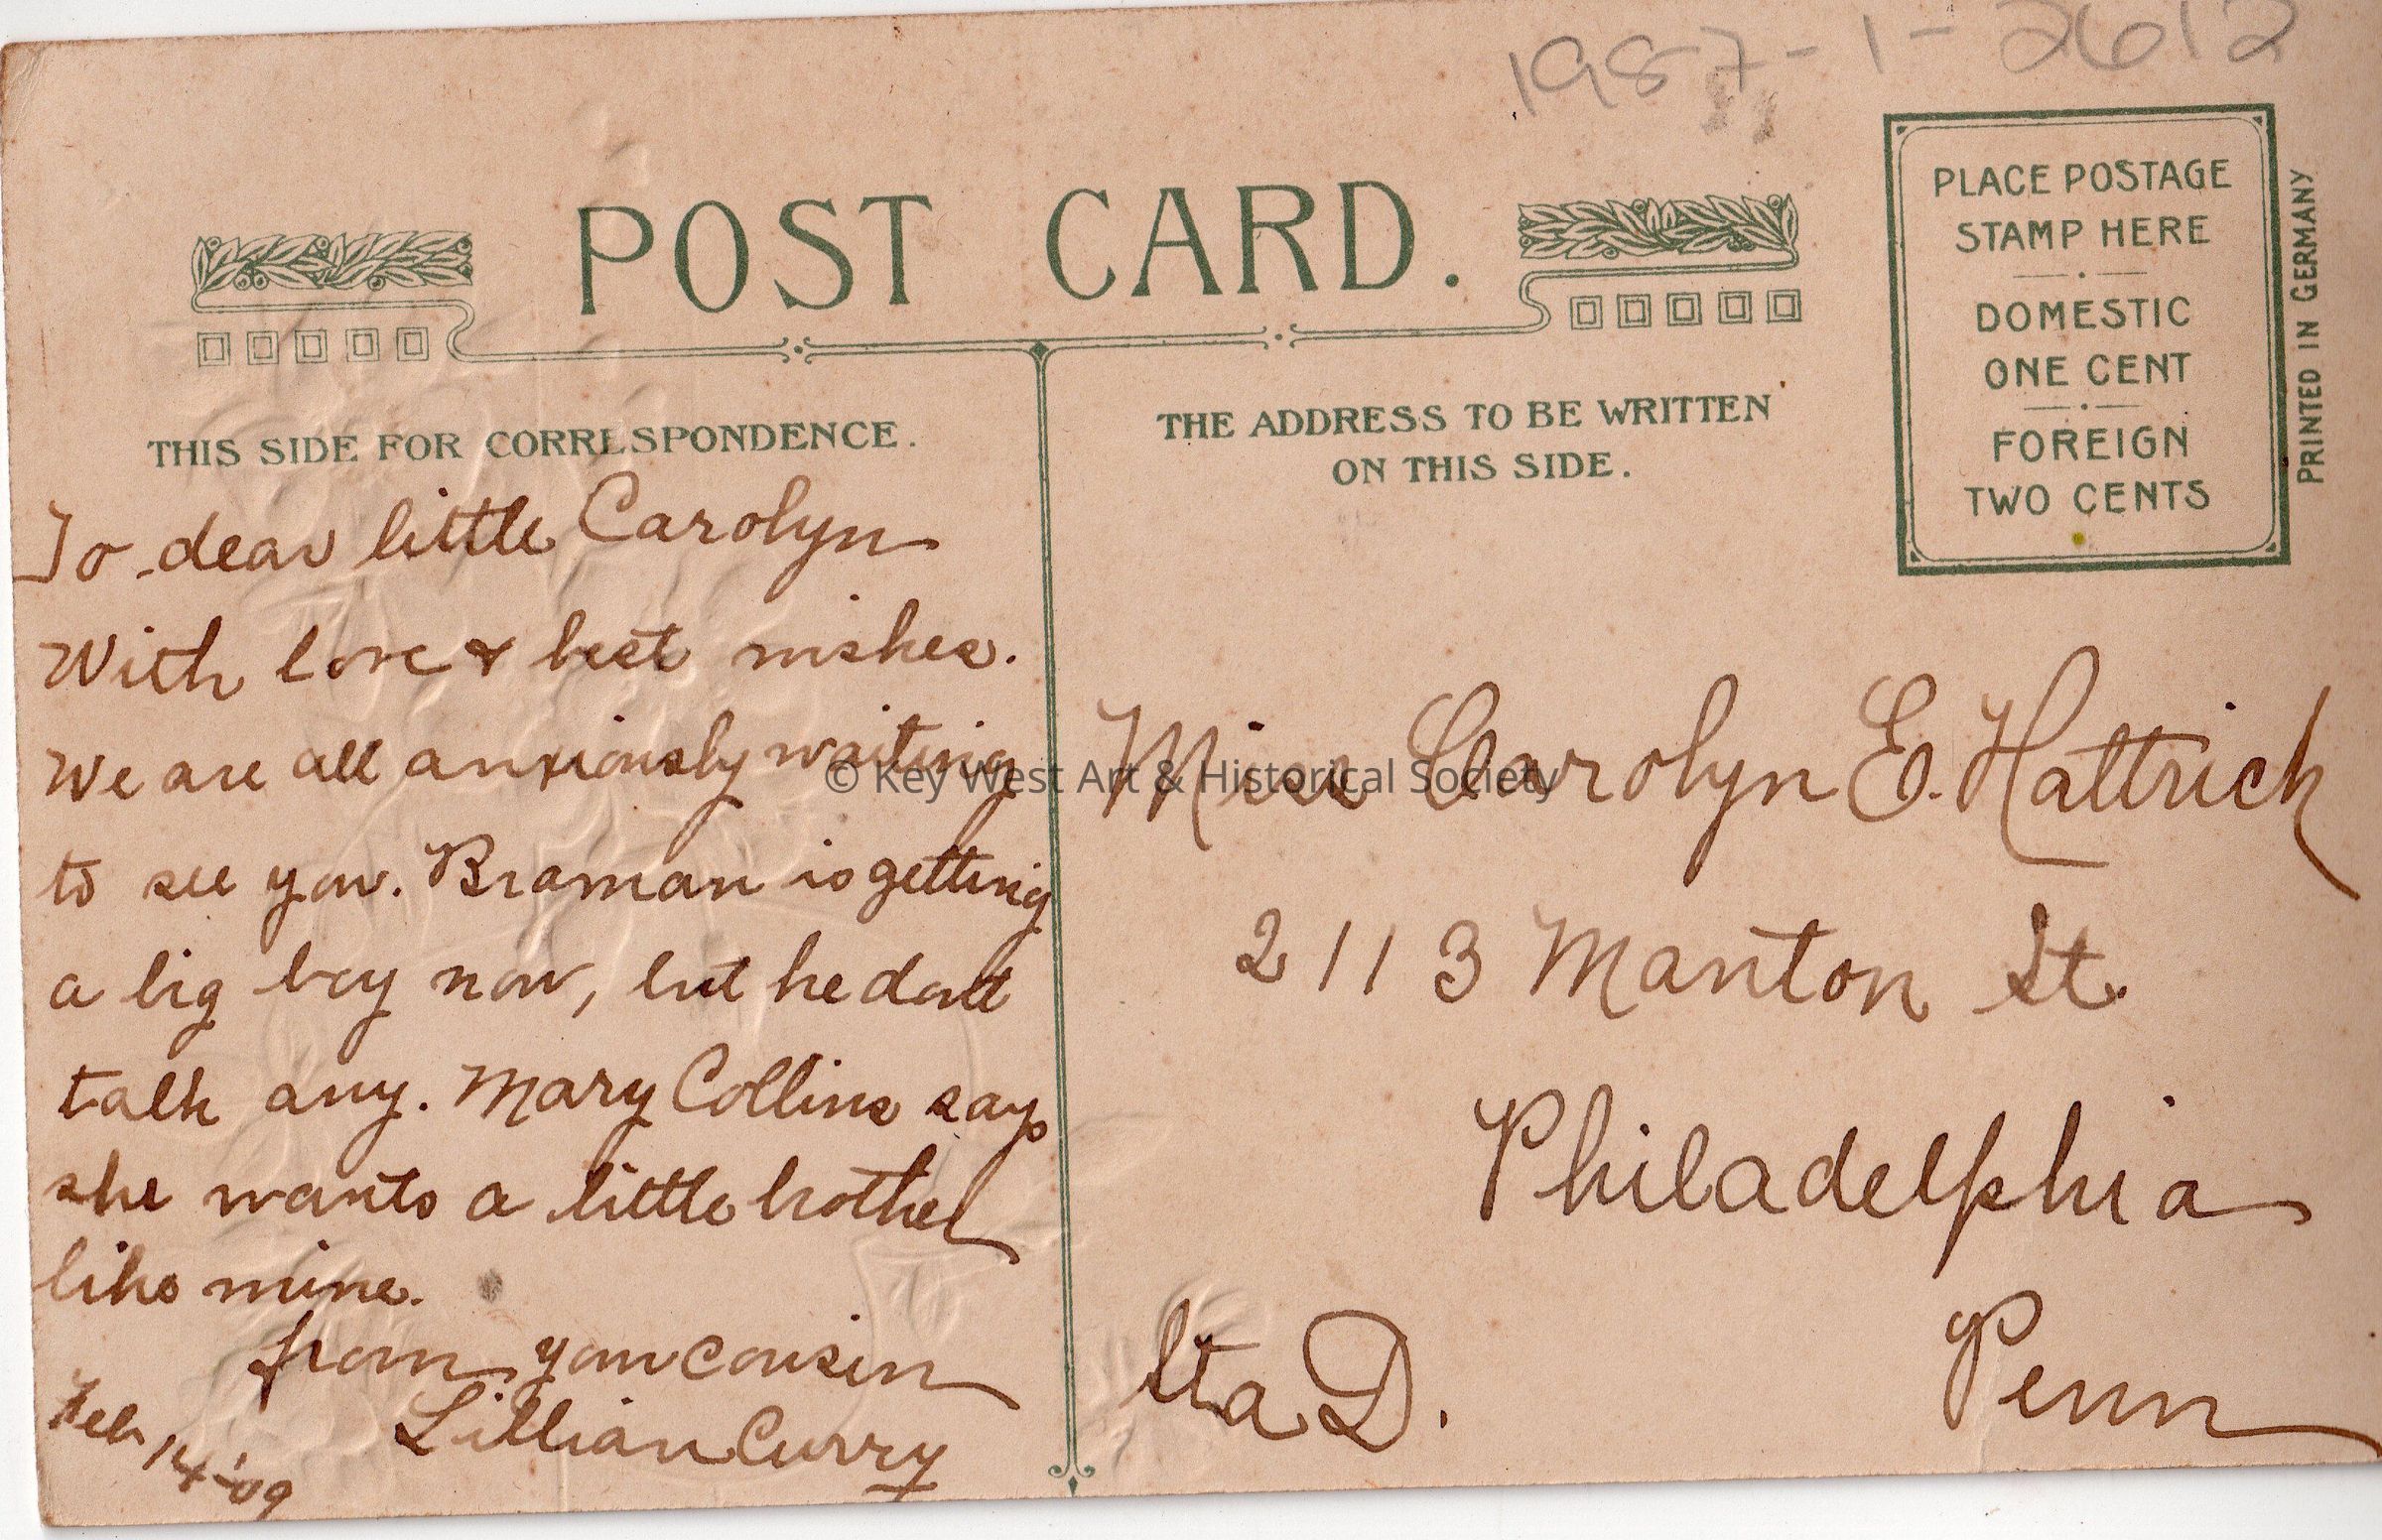 1987-1-2612
POST CARD.
PLACE POSTAGE
STAMP HERE
DOMESTIC
ONE CENT
FOREIGN
TWO CENTS
PRINTED IN GERMANY
THIS SIDE FOR CORRESPONDENCE.
To dear little Carolyn
With love & best wishes.
We are all anxiously waiting
to see you. Braman is getting
a big boy now, but he dont
talk any. Mary Collins says
she wants a little brother
like mine.
from your cousin
Lillian Curry
Feb 14-'09
THE ADDRESS TO BE WRITTEN
ON THIS SIDE.
Miss Carolyn E. Hattrick
2113 Manton St.
Philadelphia
Penn
Sta D.
© Key West Art & Historical Society